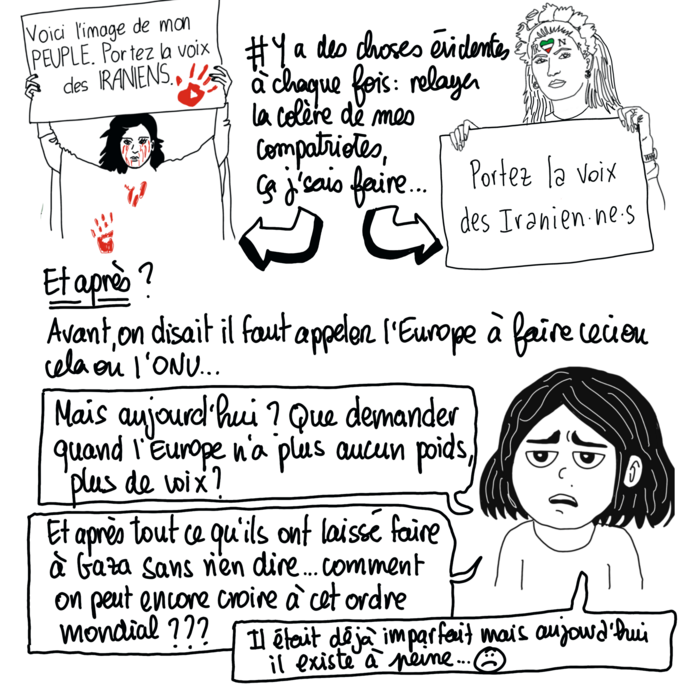 Voici l'image de mon
PEUPLE. Portez la voix
des IRANIENS.
#Y a des choses évidentes
à chaque fois : relayer
la colère de mes
compatriotes,
ça j'sais faire...
Portez la voix
des Iranien·ne·s
Et après ?
Avant, on disait il faut appeler l'Europe à faire ceci ou
cela ou l'ONU...
Mais aujourd'hui ? Que demander
quand l'Europe n'a plus aucun poids,
plus de voix ?
Et après tout ce qu'ils ont laissé faire
à Gaza sans rien dire... comment
on peut encore croire à cet ordre
mondial ???
Il était déjà imparfait mais aujourd'hui
il existe à peine...